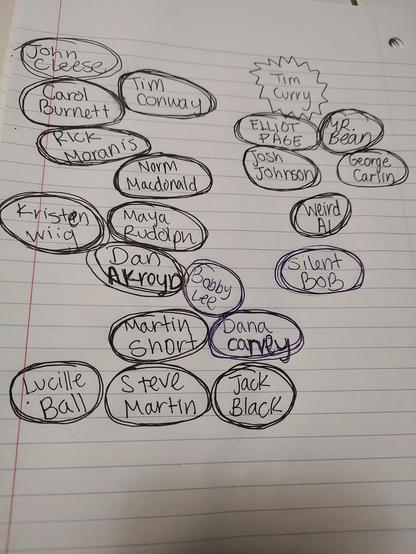 John
Cleese
Carol
Burnett
Tim
Conway
Rick
Moranis
Norm
Macdonald
Kristen
Wiig
Maya
Rudolph
Dan
AKroyd
Bobby
Lee
Martin
Short
Dana
carvey
Lucille
Ball
Steve
Martin
Jack
Black
Tim
Curry
ELLIOT
PAGE
MR.
Bean
Josh
Johnson
George
Carlin
Weird
Al
Silent
BOB